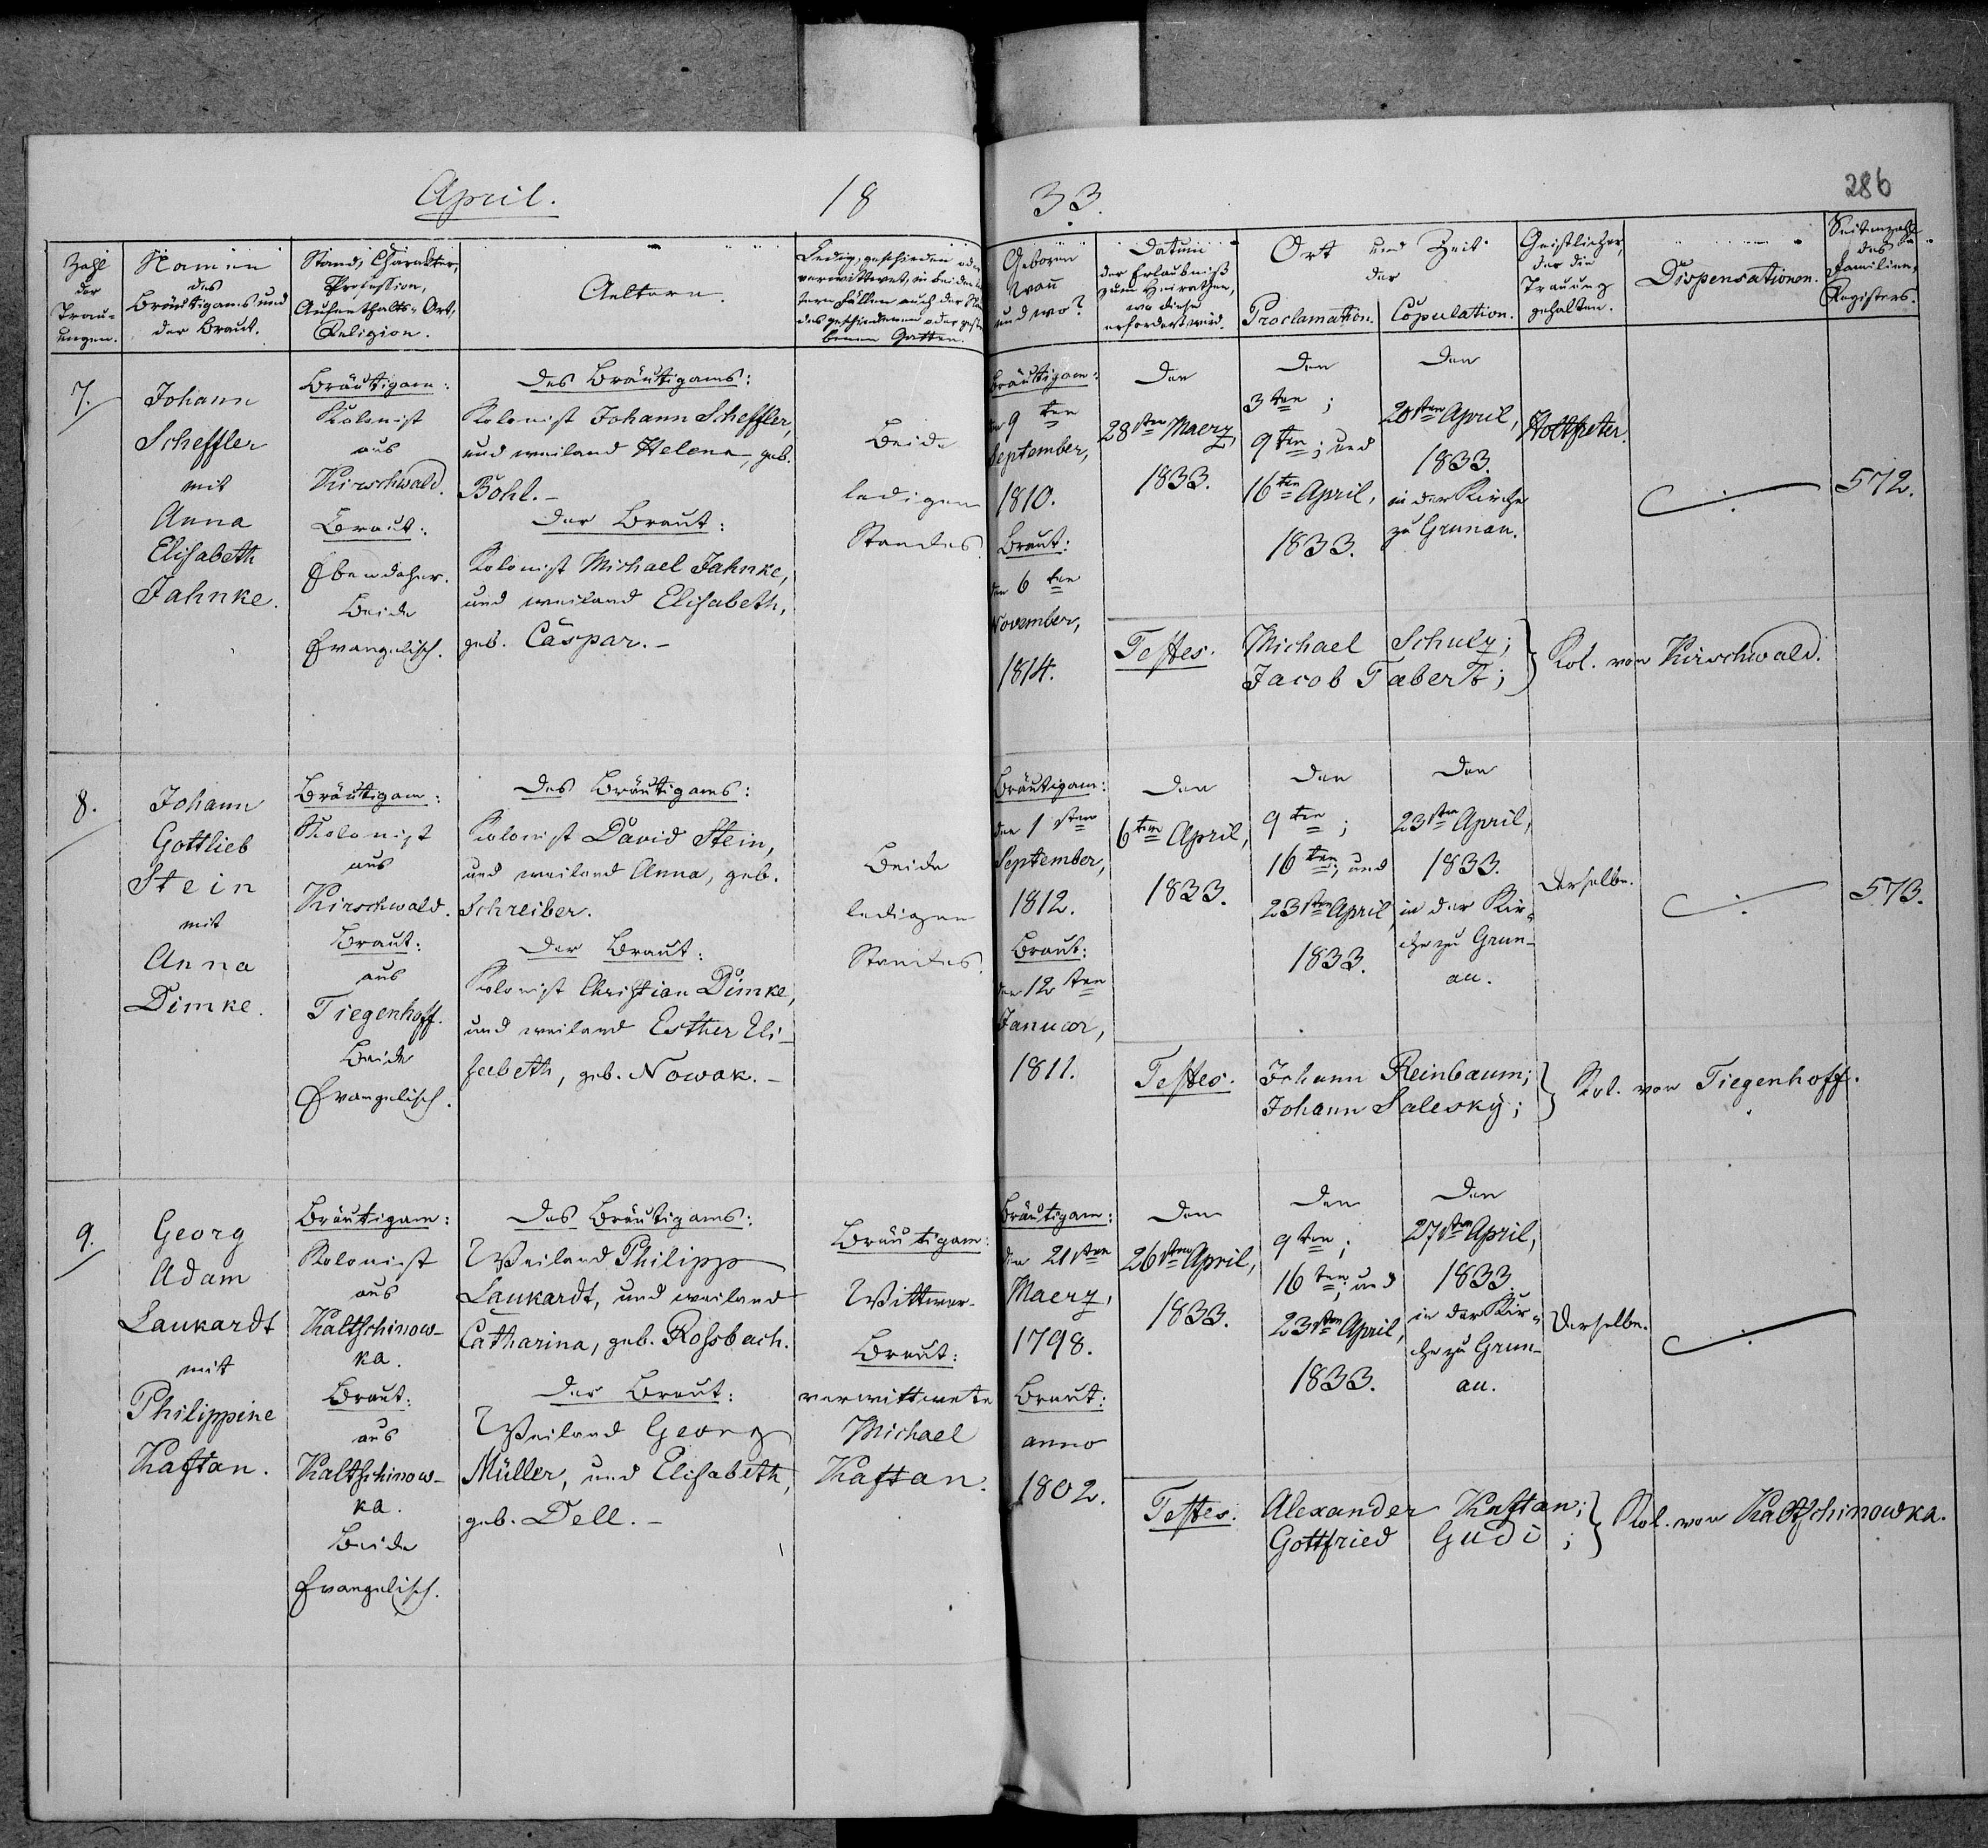 April. 18 33.
286
Zahl
der
Trau-
ungen.
Namen
des
Bräutigams und
der Braut.
Stand, Charakter,
Profession,
Aufenthalts-Ort,
Religion.
Aeltern.
Ledig, geschieden oder
verwittwet, in beiden letz
tern Fällen auch der Na
des geschiedenen oder gestor
benen Gatten.
Geboren
wann
und wo?
Datum
der Erlaubniß
zum Heirathen,
wo diese
erfordert wird.
Ort und Zeit
der
Proclamation. Copulation.
Geistlicher,
der die
Trauung
gehalten.
Dispensationen.
Seitenzahl
des
Familien-
Registers.
7.
Johann
Scheffler
mit
Anna
Elisabeth
Jahnke.
Bräutigam:
Kolonist
aus
Kirschwald.
Braut:
Ebendaher.
Beide
Evangelisch.
Des Bräutigams:
Kolonist Johann Scheffler,
und weiland Helena, geb.
Bohl.-
Der Braut:
Kolonist Michael Jahnke,
und weiland Elisabeth,
geb. Caspar.-
Beide
ledigen
Standes.
Bräutigam:
den 9ten
September,
1810.
Braut:
den 6ten
November,
1814.
Den
28sten Maerz
1833.
Den
3ten;
9ten; und
16ten April,
1833.
Den
20sten April,
1833.
in der Kirche
zu Grunau.
Holtfreter.
572.
Testes. Michael Schulz;
Jacob Tabert; } Kol. von Kirschwald.
8.
Johann
Gottlieb
Stein
mit
Anna
Dimke.
Bräutigam:
Kolonist
aus
Kirschwald.
Braut:
aus
Tiegenhoff.
Beide
Evangelisch.
Des Bräutigams:
Kolonist David Stein,
und weiland Anna, geb.
Schreiber.
Der Braut:
Kolonist Christian Dimke,
und weiland Esther Eli-
sabeth, geb. Nowak.-
Beide
ledigen
Standes.
Bräutigam:
den 1sten
September,
1812.
Braut:
den 12ten
Januar,
1811.
Den
6ten April,
1833.
Den
9ten;
16ten; und
23sten April,
1833.
Den
23sten April,
1833.
in der Kir-
che zu Grun-
au.
Derselbe.
573.
Testes. Johann Reinbaum;
Johann Salesky; } Kol. von Tiegenhoff.
9.
Georg
Adam
Laukardt
mit
Philippine
Kaftan.
Bräutigam:
Kolonist
aus
Kaltschinow-
ka.
Braut:
aus
Kaltschinow-
ka.
Beide
Evangelisch.
Des Bräutigams:
Weiland Philipp
Laukardt, und weiland
Catharina, geb. Rossbach.
Der Braut:
Weiland Georg
Müller, und Elisabeth,
geb. Dell.-
Bräutigam:
Wittwer.
Braut:
verwittwete
Michael
Kaftan.
Bräutigam:
den 21sten
Maerz,
1798.
Braut:
anno
1802.
Den
26sten April,
1833.
Den
9ten;
16ten; und
23sten April,
1833.
Den
27sten April,
1833.
in der Kir-
che zu Grun-
au.
Derselbe.
Testes. Alexander Kaftan;
Gottfried Gudi; } Kol. von Kaltschinowka.